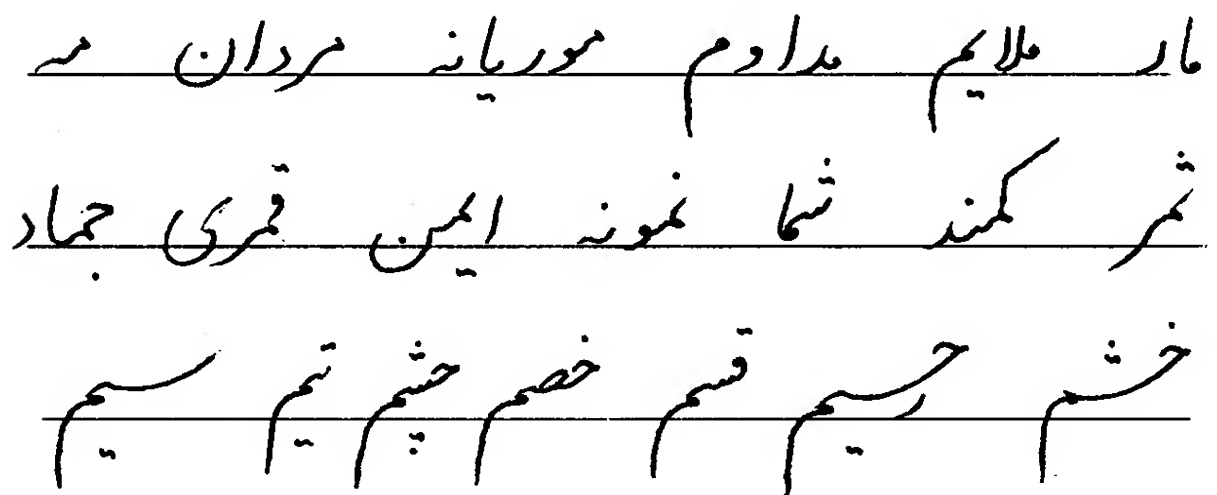 مار ملایم مداوم موریانه مردان مه
ثمر کمند شما نمونه ایمن قمری جماد
خشم قسم خصم چشم تیم سیم